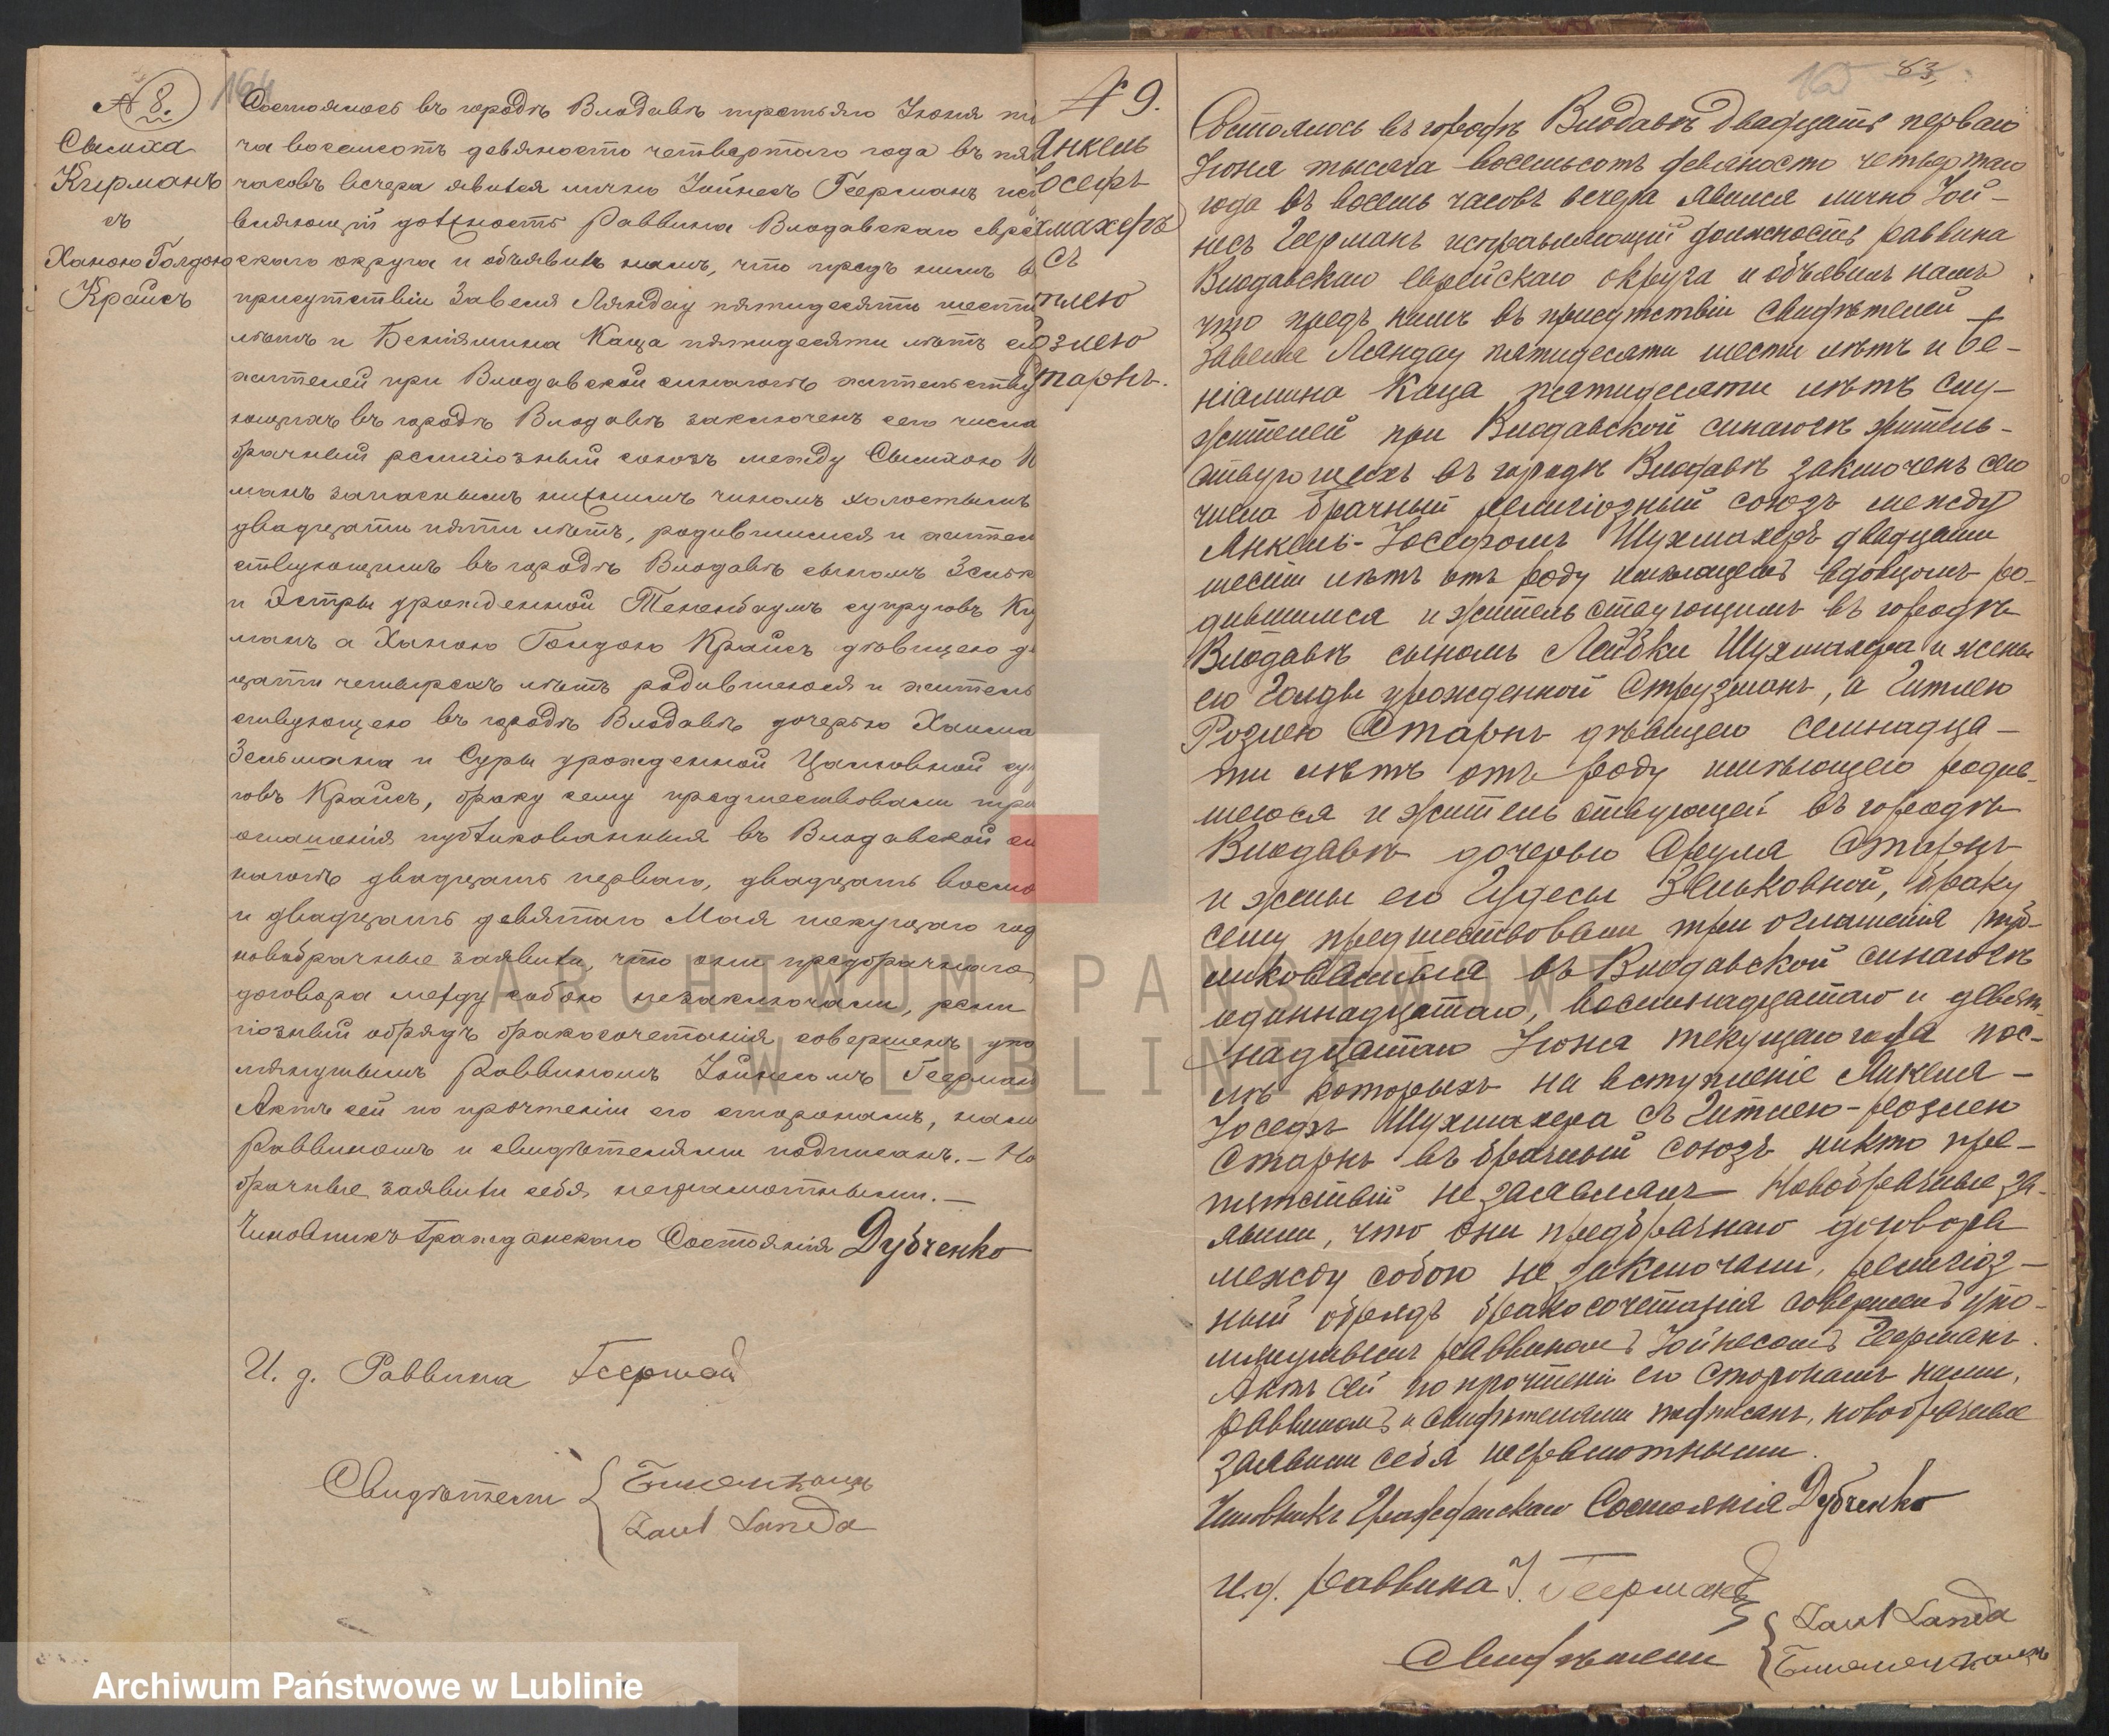 № 8.
Сымха
Кирманъ
съ
Ханою Голдою
Крайсъ
164
Состоялось въ городѣ Влодавѣ третьяго Іюня ты
ча восемсотъ девяносто четвертаго года въ пя
часовъ вечера явился лично Іойнесъ Геерманъ исп
вляющій должность Раввина Влодавскаго евре
скаго округа и объявилъ намъ, что предъ нимъ в
присутствіи Завеля Ляндау пятидесяти шести
лѣтъ и Беніямина Каца пятидесяти лѣтъ слу
жителей при Влодавской синагогѣ жительству
ющихъ въ городѣ Влодавѣ заключенъ сего числа
брачный религіозный союзъ между Сымхою К
манъ запаснымъ нижнимъ чиномъ холостымъ
двадцати пяти лѣтъ, родившимся и жител
ствующимъ въ городѣ Влодавѣ сыномъ
и Эстры урожденной Тененбаумъ супруговъ Ки
манъ а Ханою Голдою Крайсъ дѣвицею д
цати четырехъ лѣтъ родившеюся и житель
ствующею въ городѣ Влодавѣ дочерью Хаима
Зельмана и Суры урожденной су
говъ Крайсъ, браку сему предшествовали три
оглашенія публикованныя въ Влодавской си
нагогѣ двадцать перваго, двадцать восмо
и двадцать девятаго Мая текущаго год
новобрачные заявили, что они предбрачнаго
договора между собою незаключали, рели
гіозный обрядъ бракосочетанія совершенъ упо
мянутымъ Раввиномъ Іойнесомъ Геерман
Актъ сей по прочтеніи его сторонамъ, нами
Раввиномъ и свидѣтелями подписанъ. — Но
брачные заявили себя неграмотными. —
Чиновникъ Гражданскаго Состоянія Дубченко
И. д. Раввина Геерман
Свидѣтели
Landa
№ 9.
Янкель
осефъ
хмахеръ
съ
тлею
озлею
Старкъ.
83
Состоялось въ городѣ Влодавѣ двадцать перваго
Іюня тысяча восемьсотъ девяносто четвертаго
года въ восемь часовъ вечера явился лично Іой-
несъ Геерманъ исправляющій должность раввина
Влодавскаго еврейскаго округа и объявилъ намъ
что предъ нимъ въ присутствіи свидѣтелей
Завеля Ляндау пятидесяти шести лѣтъ и Бе-
ніамина Каца пятидесяти лѣтъ слу-
жителей при Влодавской синагогѣ житель-
ствующихъ въ городѣ Влодавѣ заключенъ сего
числа брачный религіозный союзъ между
Янкель-Іосефомъ Шухмахеръ двадцати
шести лѣтъ отъ роду имѣющемъ вдовцомъ ро-
дившимся и жительствующимъ въ городѣ
Влодавѣ сыномъ Лейбки Шухмахера и жены
его Голды урожденной Струзманъ, а Гитлею
Розлею Старкъ дѣвицею семнадца-
ти лѣтъ отъ роду имѣющею родив-
шеюся и жительствующей въ городѣ
Влодавѣ дочерью Сруля Старкъ
и жены его Гудесы Зельковной, браку
сему предшествовали три оглашенія пуб-
ликованныя въ Влодавской синагогѣ
одиннадцатаго, восемнадцатаго и девят-
надцатаго Іюня текущаго года пос-
лѣ которыхъ на вступленіе Янкеля-
Іосефъ Шухмахера съ Гитлею-Розлею
Старкъ въ брачный союзъ никто пре-
пятствій не заявлялъ Новобрачные за-
явили, что они предбрачнаго договора
между собою не заключали, религіоз-
ный обрядъ бракосочетанія совершенъ упо-
мянутымъ раввиномъ Іойнесомъ Геерманъ.
Актъ сей по прочтеніи его сторонамъ нами,
раввиномъ и свидѣтелями подписанъ, новобрачные
заявили себя неграмотными.
Чиновникъ Гражданскаго Состоянія Дубченко
И. д. раввина І. Геерманъ
Landa
Свидѣтели
ARCHIWUM PAŃSTWOWE
W LUBLINIE
Archiwum Państwowe w Lublinie